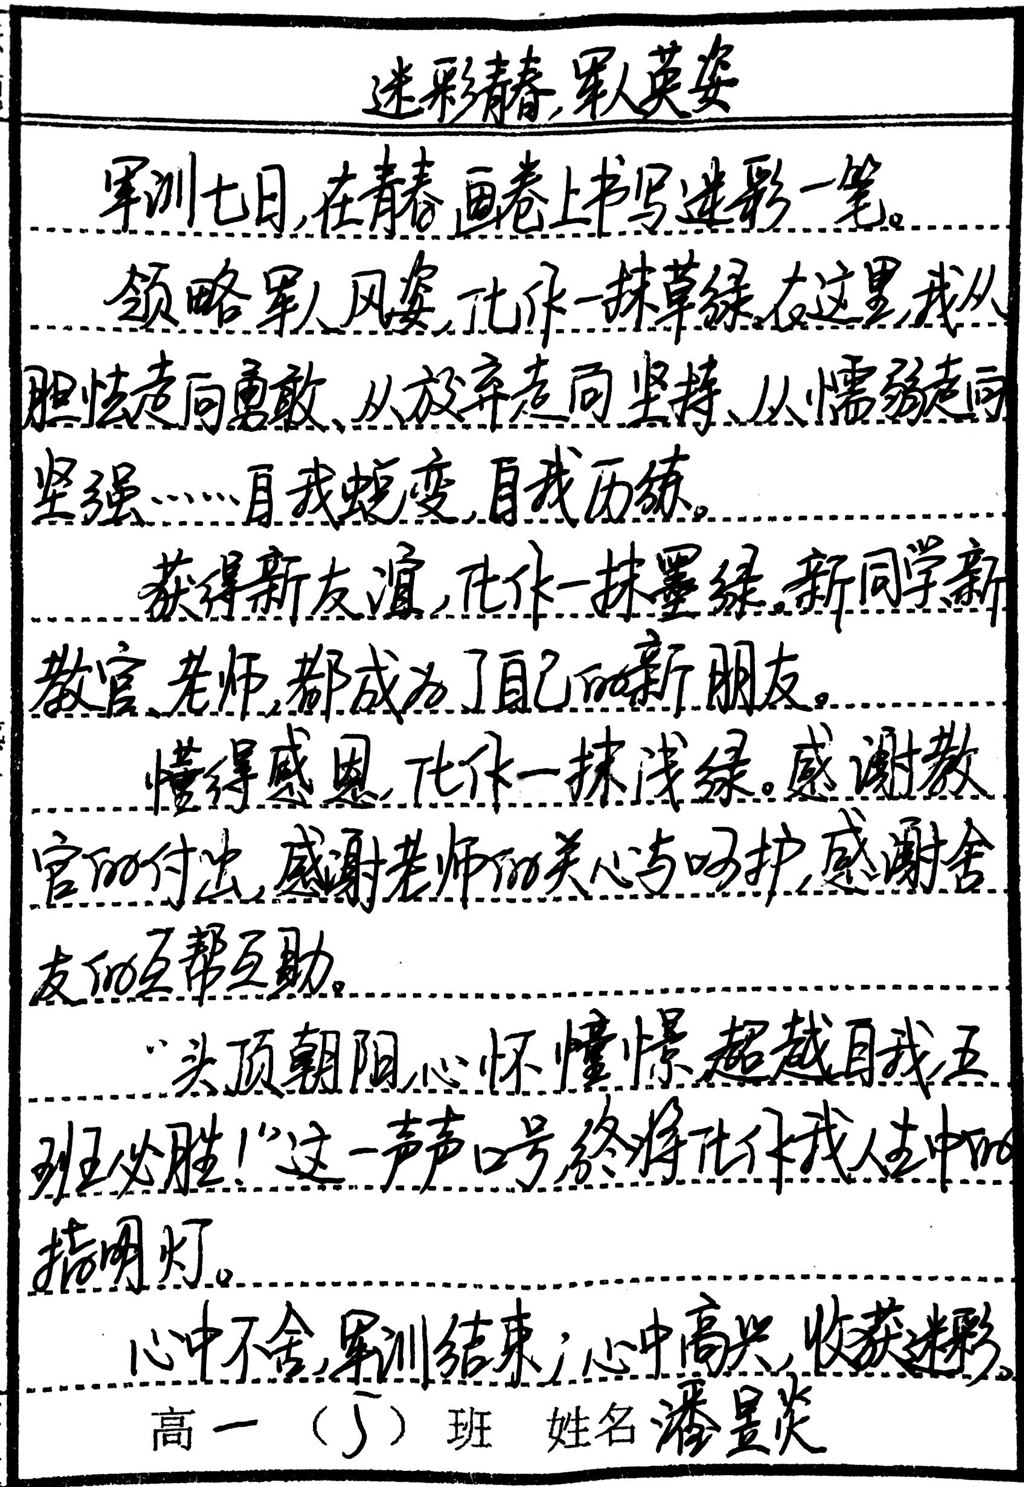 迷彩青春，军人英姿
军训七日，在青春画卷上书写迷彩一笔。
领略军人风姿，化作一抹草绿。在这里，我从
胆怯走向勇敢、从放弃走向坚持、从懦弱走向
坚强……自我蜕变，自我历练。
获得新友谊，化作一抹墨绿。新同学、新
教官、老师，都成为了自己的新朋友。
懂得感恩，化作一抹浅绿。感谢教
官的付出，感谢老师的关心与呵护，感谢舍
友的互帮互助。
“头顶朝阳，心怀憧憬，超越自我，五
班必胜！”这一声声口号，终将化作我人生中的
指明灯。
心中不舍，军训结束；心中高兴，收获迷彩。
高一（5）班 姓名潘昱炎